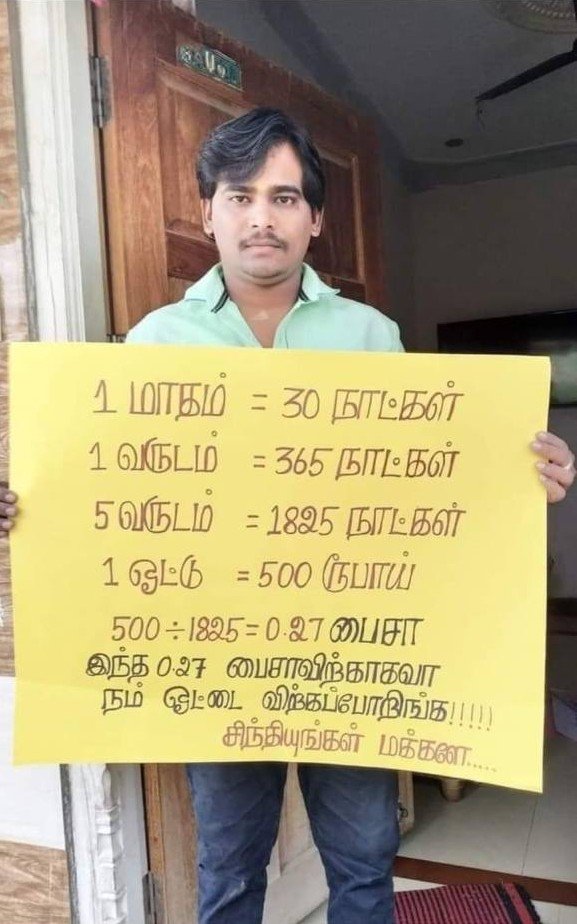 1 மாதம் = 30 நாட்கள்
1 வருடம் = 365 நாட்கள்
5 வருடம் = 1825 நாட்கள்
1 ஓட்டு = 500 ரூபாய்
500 ÷ 1825 = 0.27 பைசா
இந்த 0.27 பைசாவிற்காகவா
நம் ஓட்டை விற்கப்போறிங்க!!!!!
சிந்தியுங்கள் மக்களே.....